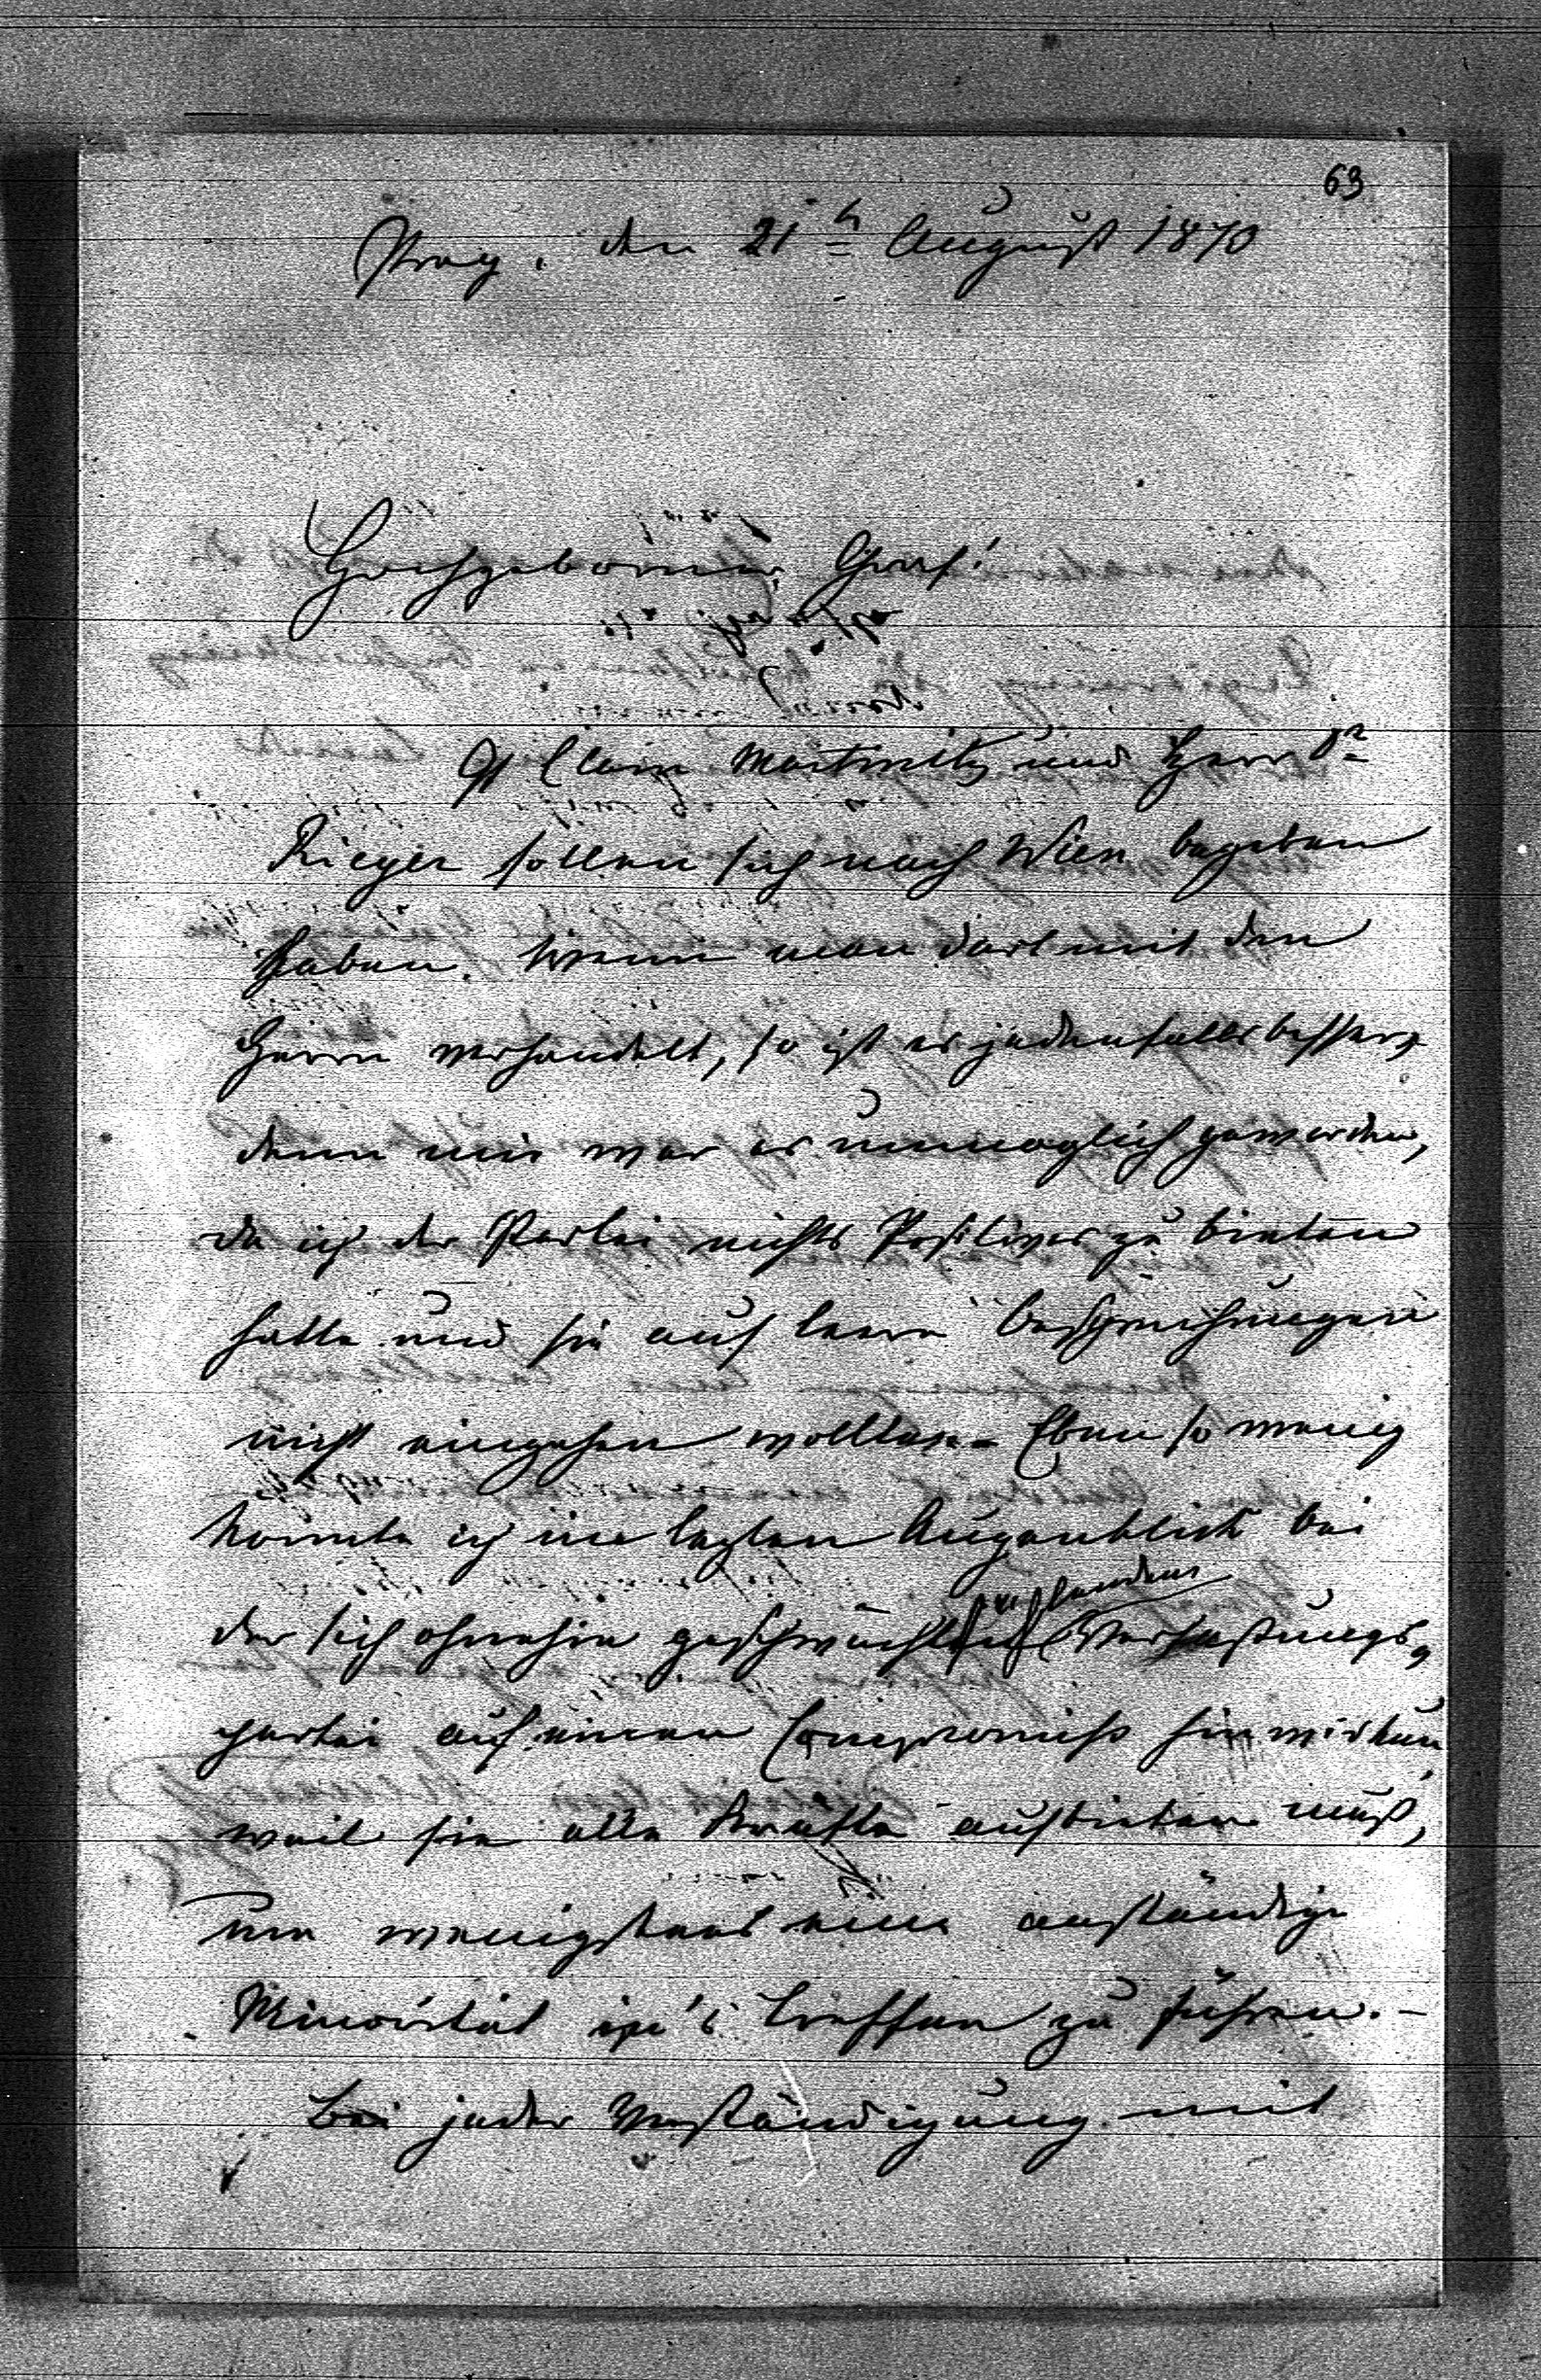 63
Prag, den 21t August 1870
Hochgeborner Graf!
Gf Clam Martinitz und Herr Dr
Rieger sollen sich nach Wien begeben
haben. Wenn man dort mit den
Herrn verhandelt, so ist es jedenfalls besser,
denn mir war es unmoglich geworden,
da ich der Partei nichts Positives zu bieten
hatte und sie auf leere Besprechungen
nicht eingehen wollten. Eben so wenig
konnte ich im lezten Augenblick bei
der sich ohnehin geschwächt fühlenden Verfassungs-
partei auf einen Compromiß hin wirken,
weil sie alle Kräfte aufbieten muß,
um wenigstens eine anständige
Minorität in's Treffen zu führen. –
Bei jeder Verständigung mit